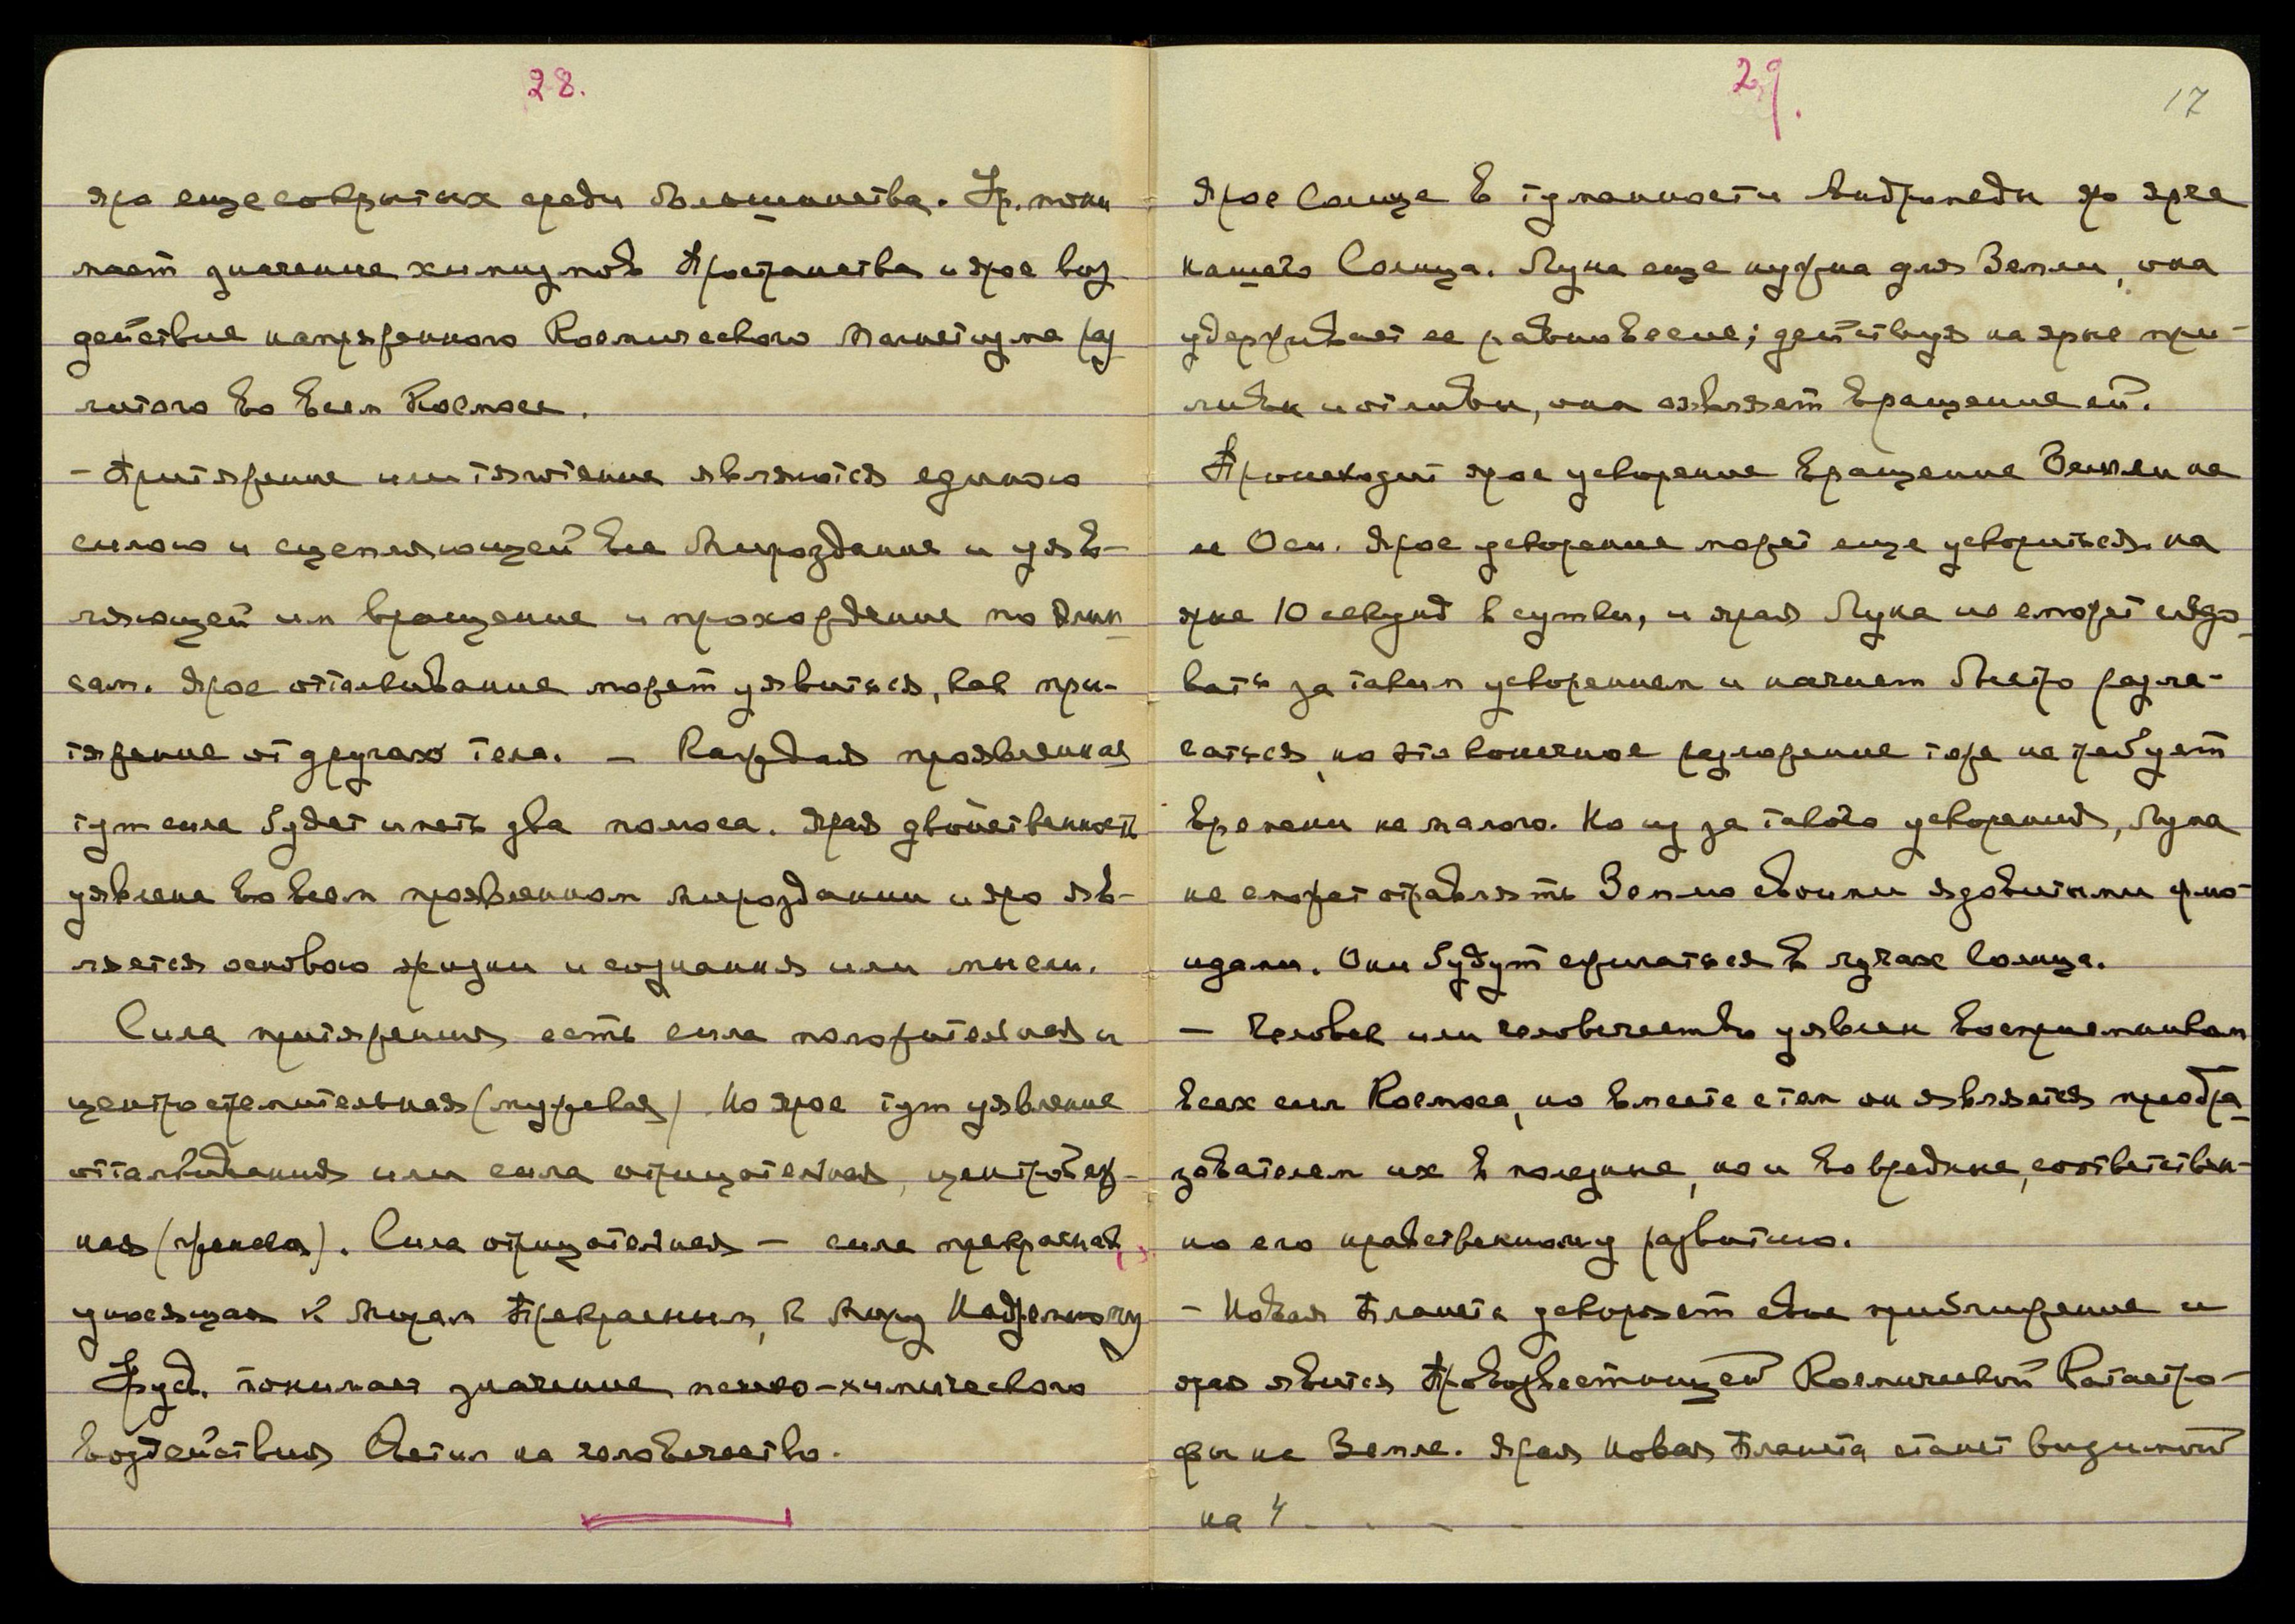 28.
яро еще сокрытых среди большинства. Ур. пони
мает значение химизмов Пространства и ярое воз
действие напряженного Космического Магнетизма раз
литого во всем Космосе.
- Притяжение или тяготение являются единою
силою и сцепляющей все Мироздание и уяв-
ляющей им вращение и прохождение по Элип
сам. Ярое отталкивание может уявиться, как при-
тяжение от другого тела. — Каждая проявленная
тут сила будет иметь два полюса. Ярая двойственность
уявлена во всем проявленном мироздании и яро яв-
ляется основою жизни и сознания или мысли.
Сила притяжения есть сила положительная и
центростремительная (мужская). Но ярое тут уявление
отталкивания или сила отрицательная, центробеж-
ная (женская). Сила отрицательная — сила прекрасная,
уносящая к Мирам Прекрасным, к Миру Надземному
Урусв. понимает значение психо-химического
воздействия Светил на человечество.
29.
17
Ярое Солнце в туманности Андромеды яро ярее
нашего Солнца. Луна еще нужна для Земли, она
удерживает ее равновесие; действуя на ярые при-
ливы и отливы, она оявляет вращение ей.
Происходит ярое ускорение вращение Земли на
ее Оси. Ярое ускорение может еще ускориться на
ярые 10 секунд в сутки, и ярая Луна не сможет следо
вать за таким ускорением и начнет быстро разла-
гаться, но это конечное разложение тоже не требует
времени не малого. Но из за такого ускорения, Луна
не сможет отравлять Землю своими ядовитыми флю-
идами. Они будут сжигаться в лучах Солнца.
— Человек или человечество уявлен восприемником
всех сил Космоса, но вместе с тем он является преобра
зователем их в полезные, но и во вредные, соответствен-
но его нравственному развитию.
- Новая Планета ускоряет свое приближение и
яро явится Провозвестницей Космической Катастро-
фы на Земле. Ярая Новая Планета станет видимой
на 4 . - - -